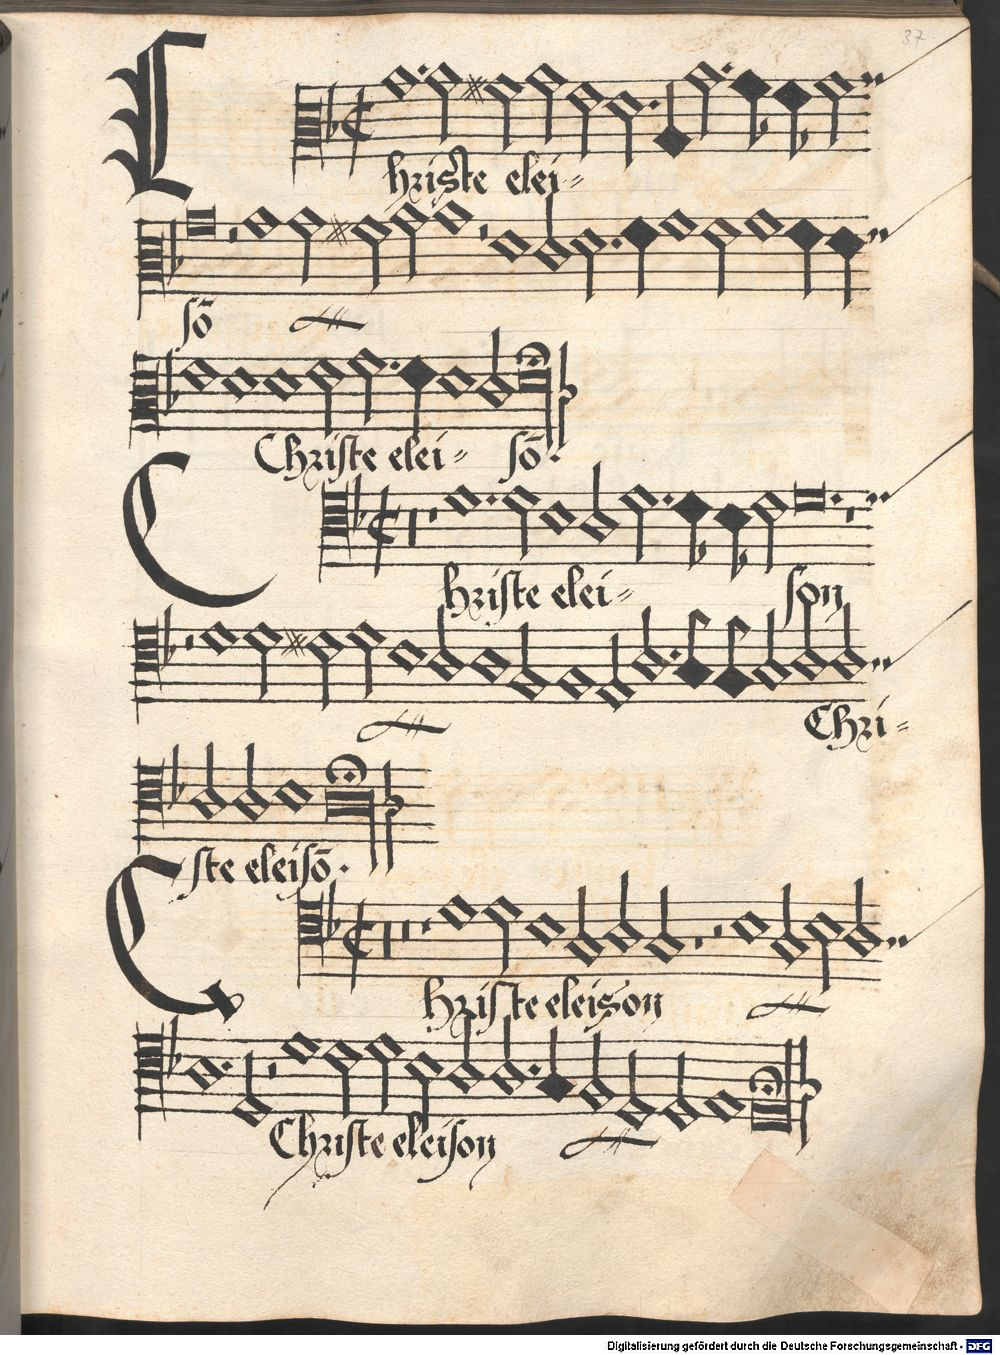 37
Christe elei=
sō
Christe elei= sō.
Christe elei= son
Chri=
ste eleisō.
Christe eleison
Christe eleison
Digitalisierung gefördert durch die Deutsche Forschungsgemeinschaft - DFG